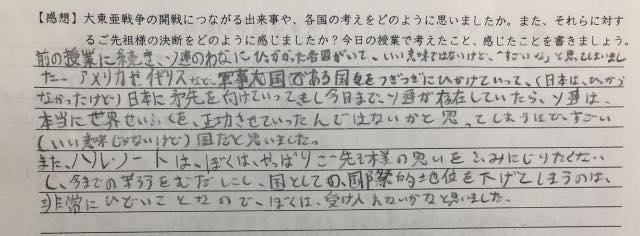 【感想】大東亜戦争の開戦につながる出来事や、各国の考えをどのように思いましたか。また、それらに対す
るご先祖様の決断をどのように感じましたか？今日の授業で考えたこと、感じたことを書きましょう。
前の授業に続き、ソ連のわなにひっかかった各国がいて、いい意味ではないけど、「すごいな」と思ってしまいまし
た。アメリカやイギリスなど、軍事大国である国々をつぎつぎにひっかけていって、（日本は、ひっかから
なかったけど）日本に矛先を向けていって、もし今日まで、ソ連が存在していたら、ソ連は、
本当に世界せいふくを、正功させていったんではないかと思ってしまうほど、すごい
（いい意味じゃないけど）国だと思いました。
また、ハル・ノートは、ぼくは、やっぱりご先祖様の思いをふみにじりたくない
し、今までの苦ろうをむだにし、国としての、国際的地位を下げてしまうのは、
非常にひどいことなので、ぼくは、受け入れないかなと思いました。